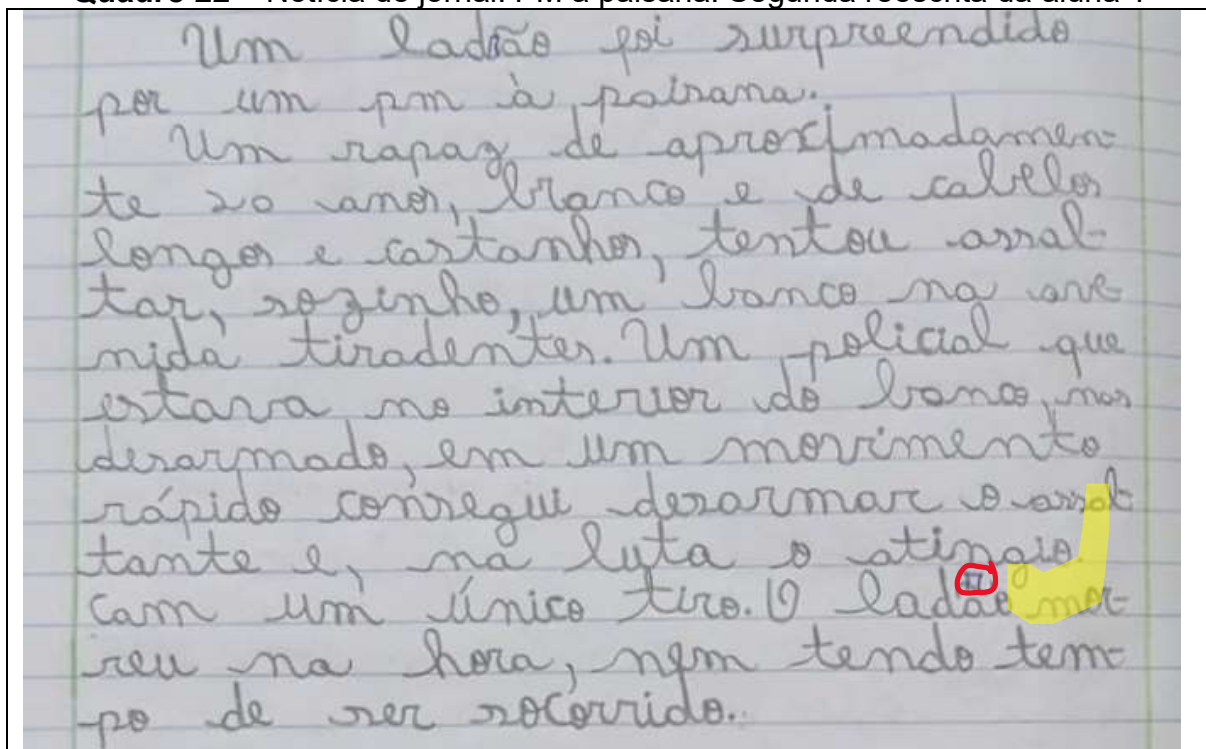 Quadro 22 – Notícia de jornal: PM à paisana. Segunda reescrita da aluna
Um ladrão foi surpreendido
por um pm à paisana.
Um rapaz de aproximadamen-
te 20 anos, branco e de cabelos
longos e castanhos, tentou assal-
tar, sozinho, um banco na ave-
nida tiradentes. Um policial que
estava no interior do banco, mas
desarmado, em um movimento
rápido consegui desarmar o assal-
tante e, na luta o atingio.
com um único tiro. O ladrão mor-
reu na hora, nem tendo tem-
po de ser socorrido.